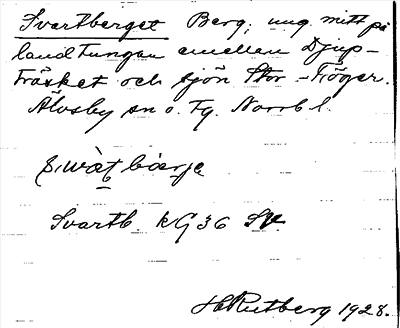 Svartberget Berg, ung. mitt på
landtungan emellan Djup-
träsket och sjön Stor-Tröger.
Älvsby sn o. Tg. Norrb l.
s.wàt bàrje
Svartb. kG 36 Sv
H Rutberg 1928.